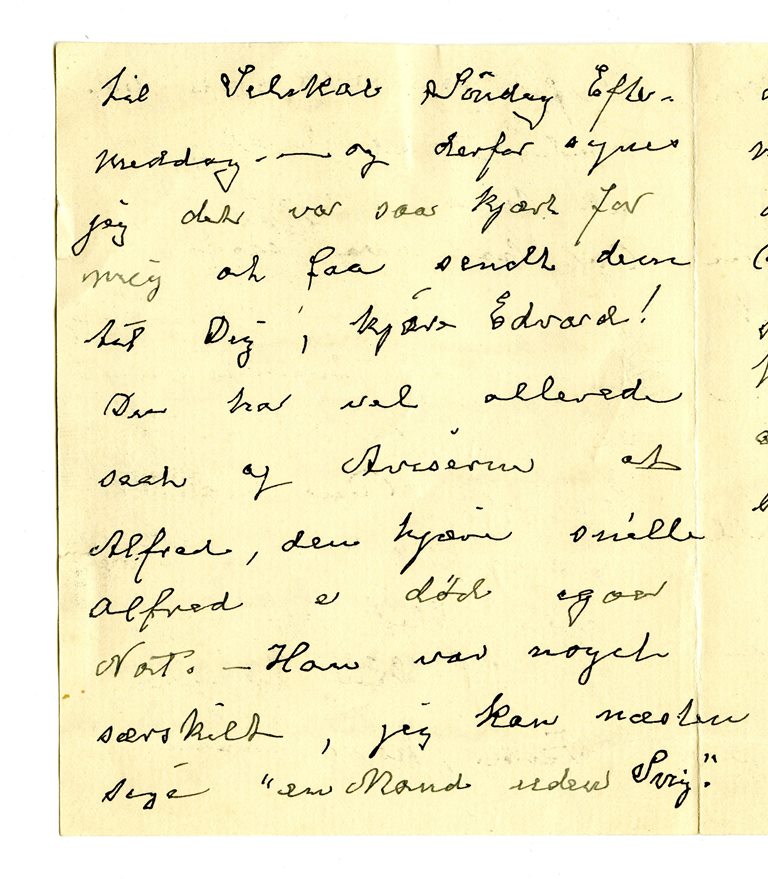 til Selskab Söndag Efter-
middag — og derfor synes
jeg det var saa kjært for
mig at faa sendt dem
til Dig, kjære Edvard!
Du har vel allerede
seet af Aviserne at
Alfred, den kjære snille
Alfred er død igaar
Nat. — Han var noget
særskilt, jeg kan næsten
sige "en Mand uden Svig".